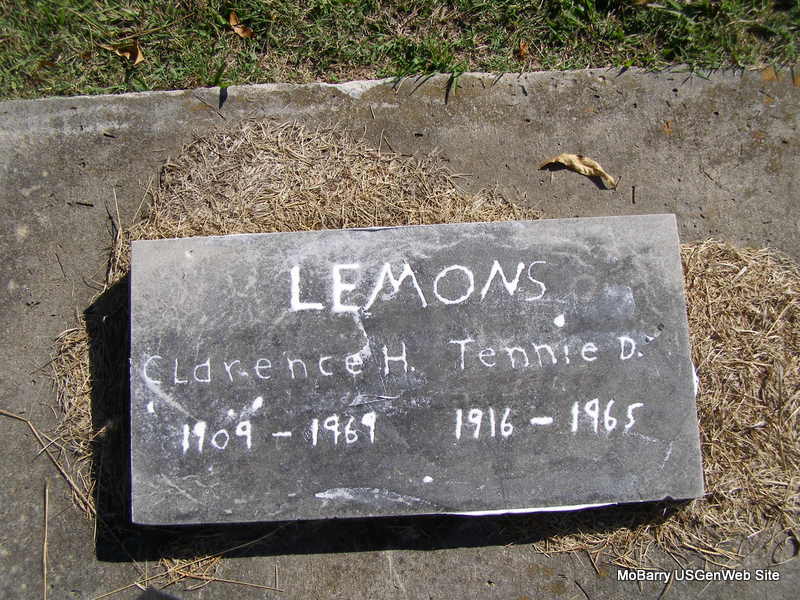 LEMONS
CLarence H. Tennie D.
1909 - 1969 1916 - 1965
MoBarry USGenWeb Site